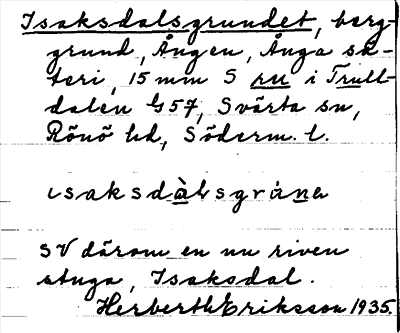 Isaksdalsgrundet, berg-
grund, Ången, Ånga sä-
teri, 15 mm S ru i Trull-
dalen G57, Svärta sn,
Rönö hd, Söderm. l.
isaksdàlsgrúna
SV därom en nu riven
stuga, Isaksdal.
Herberth Eriksson 1935.